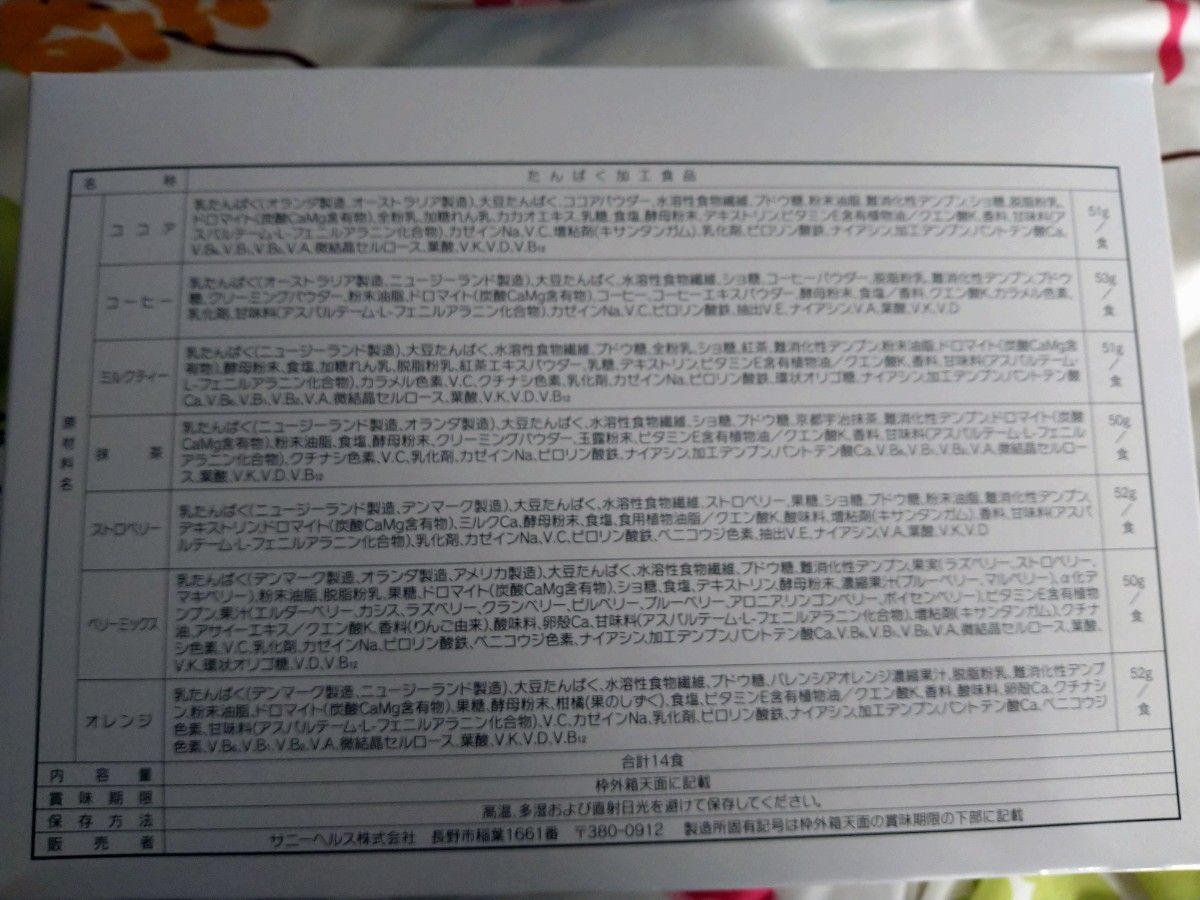 名称 たんぱく加工食品
原材料名
ココア
乳たんぱく(オランダ製造、オーストラリア製造)、大豆たんぱく、ココアパウダー、水溶性食物繊維、ブドウ糖、粉末油脂、難消化性デンプン、ショ糖、脱脂粉乳、
ドロマイト(炭酸CaMg含有物)、全粉乳、加糖れん乳、カカオエキス、乳糖、食塩、酵母粉末、デキストリン、ビタミンE含有植物油／クエン酸K、香料、甘味料(ア
スパルテーム・L-フェニルアラニン化合物)、カゼインNa、V.C、増粘剤(キサンタンガム)、乳化剤、ピロリン酸鉄、ナイアシン、加工デンプン、パントテン酸Ca、
V.B₆、V.B₁、V.B₂、V.A、微結晶セルロース、葉酸、V.K、V.D、V.B₁₂
51g／食
コーヒー
乳たんぱく(オーストラリア製造、ニュージーランド製造)、大豆たんぱく、水溶性食物繊維、ショ糖、コーヒーパウダー、脱脂粉乳、難消化性デンプン、ブドウ
糖、クリーミングパウダー、粉末油脂、ドロマイト(炭酸CaMg含有物)、コーヒー、コーヒーエキスパウダー、酵母粉末、食塩／香料、クエン酸K、カラメル色素、
乳化剤、甘味料(アスパルテーム・L-フェニルアラニン化合物)、カゼインNa、V.C、ピロリン酸鉄、抽出V.E、ナイアシン、V.A、葉酸、V.K、V.D
50g／食
ミルクティー
乳たんぱく(ニュージーランド製造)、大豆たんぱく、水溶性食物繊維、ブドウ糖、全粉乳、ショ糖、紅茶、難消化性デンプン、粉末油脂、ドロマイト(炭酸CaMg含
有物)、酵母粉末、食塩、加糖れん乳、脱脂粉乳、紅茶エキスパウダー、乳糖、デキストリン、ビタミンE含有植物油／クエン酸K、香料、甘味料(アスパルテーム・
L-フェニルアラニン化合物)、カラメル色素、V.C、クチナシ色素、乳化剤、カゼインNa、ピロリン酸鉄、環状オリゴ糖、ナイアシン、加工デンプン、パントテン酸
Ca、V.B₆、V.B₁、V.B₂、V.A、微結晶セルロース、葉酸、V.K、V.D、V.B₁₂
51g／食
抹茶
乳たんぱく(ニュージーランド製造、オランダ製造)、大豆たんぱく、水溶性食物繊維、ショ糖、ブドウ糖、京都宇治抹茶、難消化性デンプン、ドロマイト(炭酸
CaMg含有物)、粉末油脂、食塩、酵母粉末、クリーミングパウダー、玉露粉末、ビタミンE含有植物油／クエン酸K、香料、甘味料(アスパルテーム・L-フェニル
アラニン化合物)、クチナシ色素、V.C、乳化剤、カゼインNa、ピロリン酸鉄、ナイアシン、加工デンプン、パントテン酸Ca、V.B₆、V.B₁、V.B₂、V.A、微結晶セルロー
ス、葉酸、V.K、V.D、V.B₁₂
50g／食
ストロベリー
乳たんぱく(ニュージーランド製造、デンマーク製造)、大豆たんぱく、水溶性食物繊維、ストロベリー、果糖、ショ糖、ブドウ糖、粉末油脂、難消化性デンプン、
デキストリン、ドロマイト(炭酸CaMg含有物)、ミルクCa、酵母粉末、食塩、食用植物油脂／クエン酸K、酸味料、増粘剤(キサンタンガム)、香料、甘味料(アスパ
ルテーム・L-フェニルアラニン化合物)、乳化剤、カゼインNa、V.C、ピロリン酸鉄、ベニコウジ色素、抽出V.E、ナイアシン、V.A、葉酸、V.K、V.D
52g／食
ベリーミックス
乳たんぱく(デンマーク製造、オランダ製造、アメリカ製造)、大豆たんぱく、水溶性食物繊維、ブドウ糖、難消化性デンプン、果実(ラズベリー、ストロベリー、
マキベリー)、粉末油脂、脱脂粉乳、果糖、ドロマイト(炭酸CaMg含有物)、ショ糖、食塩、デキストリン、酵母粉末、濃縮果汁(ブルーベリー、マルベリー)、α化デ
ンプン、果汁(エルダーベリー、カシス、ラズベリー、クランベリー、ビルベリー、ブルーベリー、アロニア、リンゴンベリー、ボイセンベリー)、ビタミンE含有植物
油、アサイーエキス／クエン酸K、香料(りんご由来)、酸味料、卵殻Ca、甘味料(アスパルテーム・L-フェニルアラニン化合物)、増粘剤(キサンタンガム)、クチナ
シ色素、V.C、乳化剤、カゼインNa、ピロリン酸鉄、ベニコウジ色素、ナイアシン、加工デンプン、パントテン酸Ca、V.B₆、V.B₁、V.B₂、V.A、微結晶セルロース、葉酸、
V.K、環状オリゴ糖、V.D、V.B₁₂
50g／食
オレンジ
乳たんぱく(デンマーク製造、ニュージーランド製造)、大豆たんぱく、水溶性食物繊維、ブドウ糖、バレンシアオレンジ濃縮果汁、脱脂粉乳、難消化性デンプ
ン、粉末油脂、ドロマイト(炭酸CaMg含有物)、果糖、酵母粉末、柑橘(果のしずく)、食塩、ビタミンE含有植物油／クエン酸K、香料、酸味料、卵殻Ca、クチナシ
色素、甘味料(アスパルテーム・L-フェニルアラニン化合物)、V.C、カゼインNa、乳化剤、ピロリン酸鉄、ナイアシン、加工デンプン、パントテン酸Ca、ベニコウジ
色素、V.B₆、V.B₁、V.B₂、V.A、微結晶セルロース、葉酸、V.K、V.D、V.B₁₂
52g／食
内容量 合計14食
賞味期限 枠外箱天面に記載
保存方法 高温、多湿および直射日光を避けて保存してください。
販売者 サニーヘルス株式会社 長野市稲葉1661番 〒380-0912 製造所固有記号は枠外箱天面の賞味期限の下部に記載